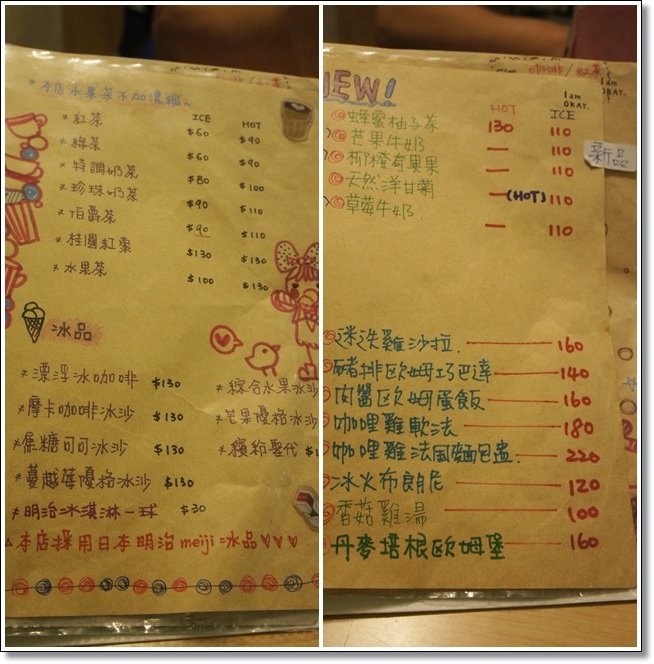 本店水果茶不加濃縮
ICE HOT
紅茶 $60 $90
綠茶 $60 $90
特調奶茶 $80 $100
珍珠奶茶 $90 $110
伯爵茶 $90 $110
桂圓紅棗 $130 $130
水果茶 $100 $130
冰品
漂浮冰咖啡 $130
摩卡咖啡冰沙 $130
焦糖可可冰沙 $130
蔓越莓優格冰沙 $130
明治冰淇淋一球 $30
綜合水果冰沙
芒果優格冰沙
繽紛聖代
本店採用日本明治meiji冰品♡♡♡
NEW!
咖啡/紅茶
I am
OKAY.
HOT ICE
新品
蜂蜜柚子茶 130 110
芒果牛奶 — 110
柳橙奇異果 — 110
天然洋甘菊 — (HOT) 110
草莓牛奶 — 110
迷迭雞沙拉 160
豬排歐姆巧巴達 140
肉醬歐姆蛋飯 160
咖哩雞軟法 180
咖哩雞法國麵包盅 220
冰火布朗尼 120
香菇雞湯 100
丹麥培根歐姆堡 160